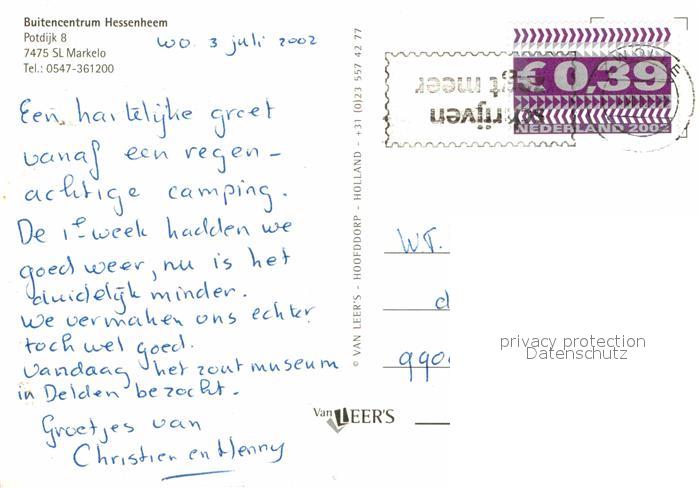 Buitencentrum Hessenheem
Potdijk 8
7475 SL Markelo
Tel.: 0547-361200
wo. 3 juli 2002
Een hartelijke groet
vanaf een regen-
achtige camping.
De 1e week hadden we
goed weer, nu is het
duidelijk minder.
We vermaken ons echter
toch wel goed.
Vandaag het zoutmuseum
in Delden bezocht.
Groetjes van
Christien en Henny
© VAN LEER'S - HOOFDDORP - HOLLAND - +31 (0)23 557 42 77
Van LEER'S
schrijven
zegt meer
€ 0,39
NEDERLAND 2002
W.T.
d
990
privacy protection
Datenschutz